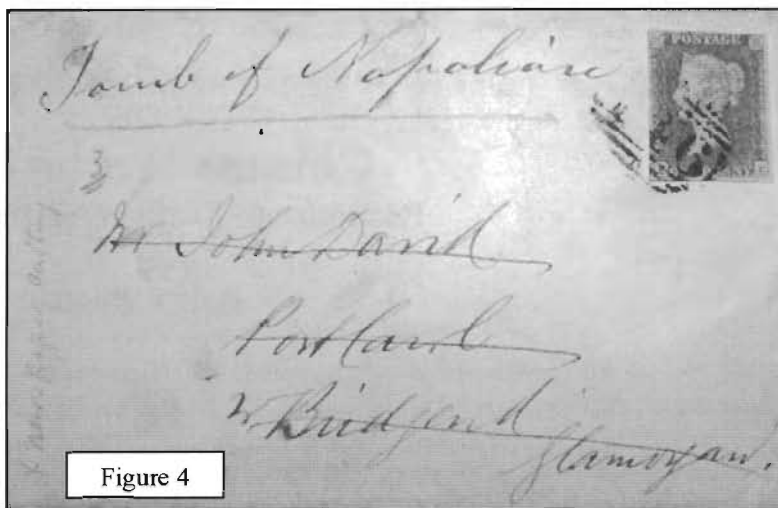 Tomb of Napoleon
POSTAGE
Mr John David
Port Cawl
Nr Bridgend
Glamorgan.
Figure 4